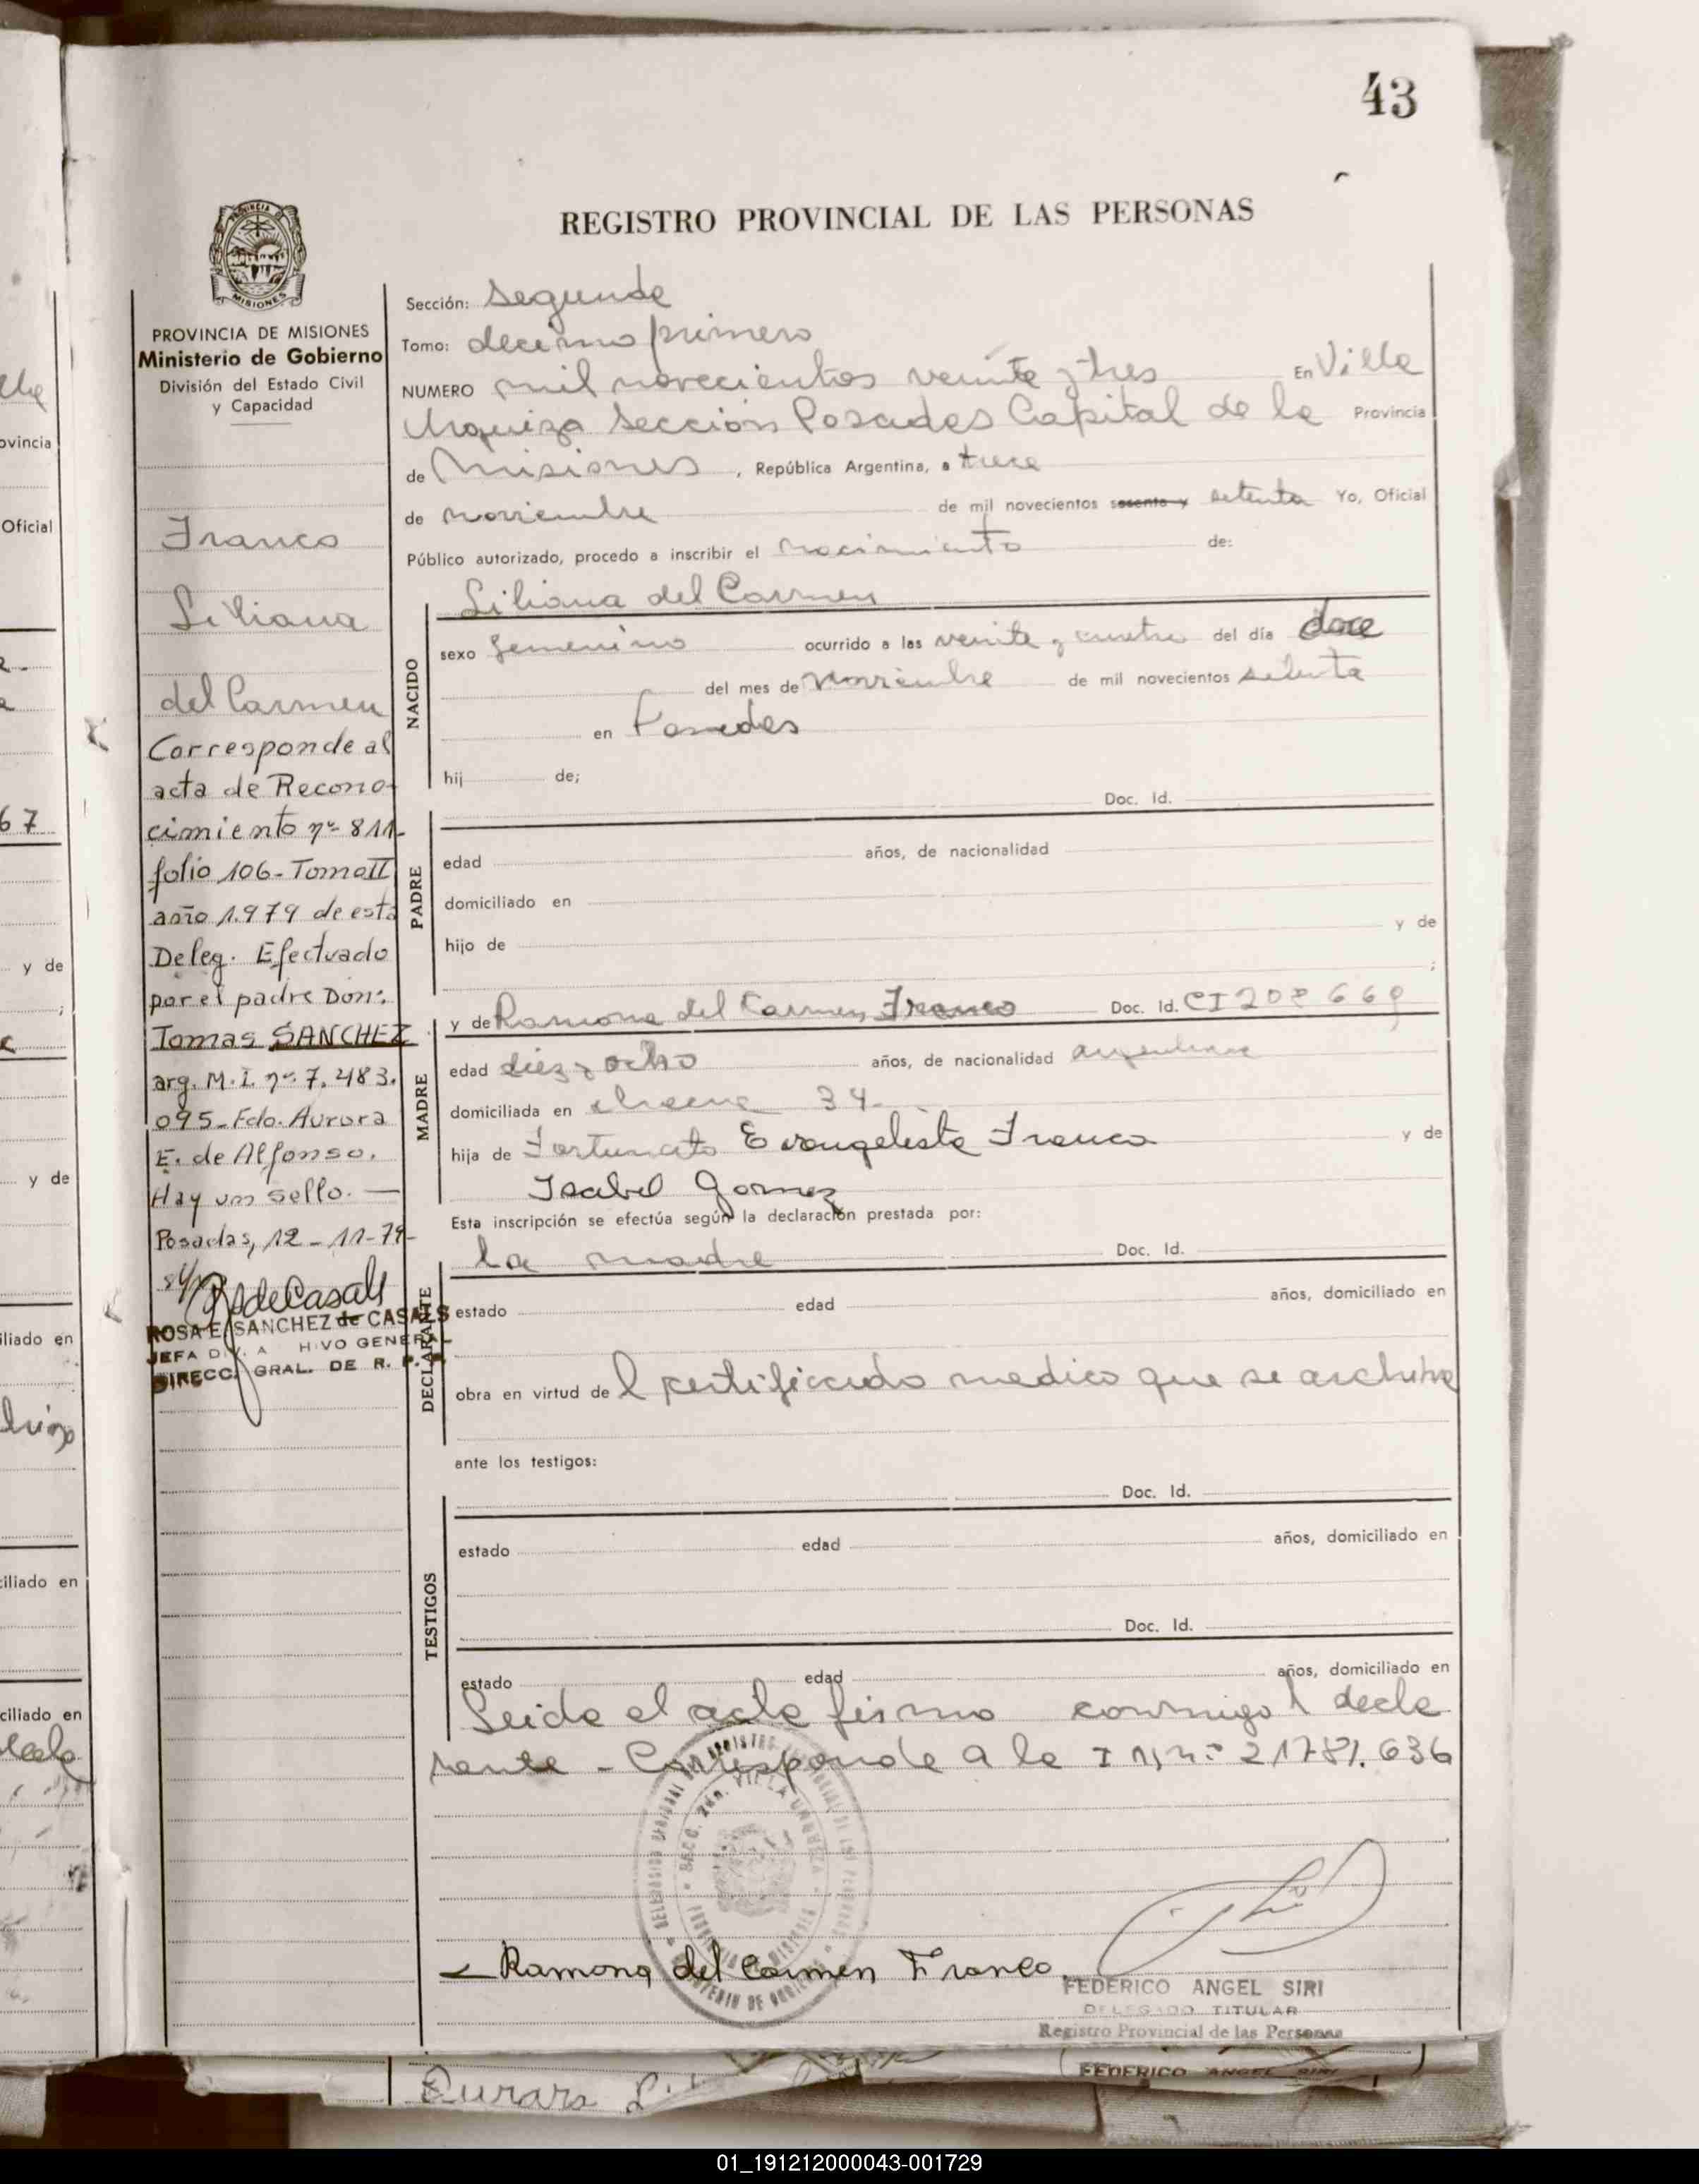 43
REGISTRO PROVINCIAL DE LAS PERSONAS
PROVINCIA DE MISIONES
Ministerio de Gobierno
División del Estado Civil
y Capacidad
Franco
Liliana
del Carmen
Corresponde al
acta de Recono-
cimiento nº 811-
folio 106-Tomo II
año 1.979 de esta
Deleg. Efectuado
por el padre Don:
Tomas SANCHEZ
arg. M.I. nº 7.483.
095-Fdo. Aurora
E. de Alfonso.
Hay un sello.—
Posadas, 12-11-79-
ROSA E. SANCHEZ de CASALS
JEFA DIV. A HIVO GENERAL
DIRECC. GRAL. DE R. P.
Sección: Segunda
Tomo: decimo primero
NUMERO mil novecientos veinte y tres En Villa
Urquiza Sección Posadas Capital de la Provincia
de Misiones, República Argentina, a trece
de noviembre de mil novecientos sesenta y setenta Yo, Oficial
Público autorizado, procedo a inscribir el nacimiento de:
Liliana del Carmen
NACIDO
sexo femenino ocurrido a las veinte y cuatro del día doce
del mes de noviembre de mil novecientos setenta
en Posadas
hij de;
Doc. Id.
PADRE
edad años, de nacionalidad
domiciliado en
hijo de y de
;
MADRE
y de Ramona del Carmen Franco Doc. Id. CI 208669
edad diez y ocho años, de nacionalidad argentina
domiciliada en chacra 34-
hija de Fortunato Evangelista Franco y de
Isabel Gomez
Esta inscripción se efectúa según la declaración prestada por:
la madre Doc. Id.
DECLARANTE
estado edad años, domiciliado en
obra en virtud de l certificado medico que se archiva
ante los testigos:
Doc. Id.
TESTIGOS
estado edad años, domiciliado en
Doc. Id.
estado edad años, domiciliado en
Leida el acta firma conmigo l decla
rante - Corresponde a la
Ramona del Carmen Franco
FEDERICO ANGEL SIRI
DELEGADO TITULAR
Registro Provincial de las Personas
FEDERICO ANGEL SIRI
01_191212000043-001729